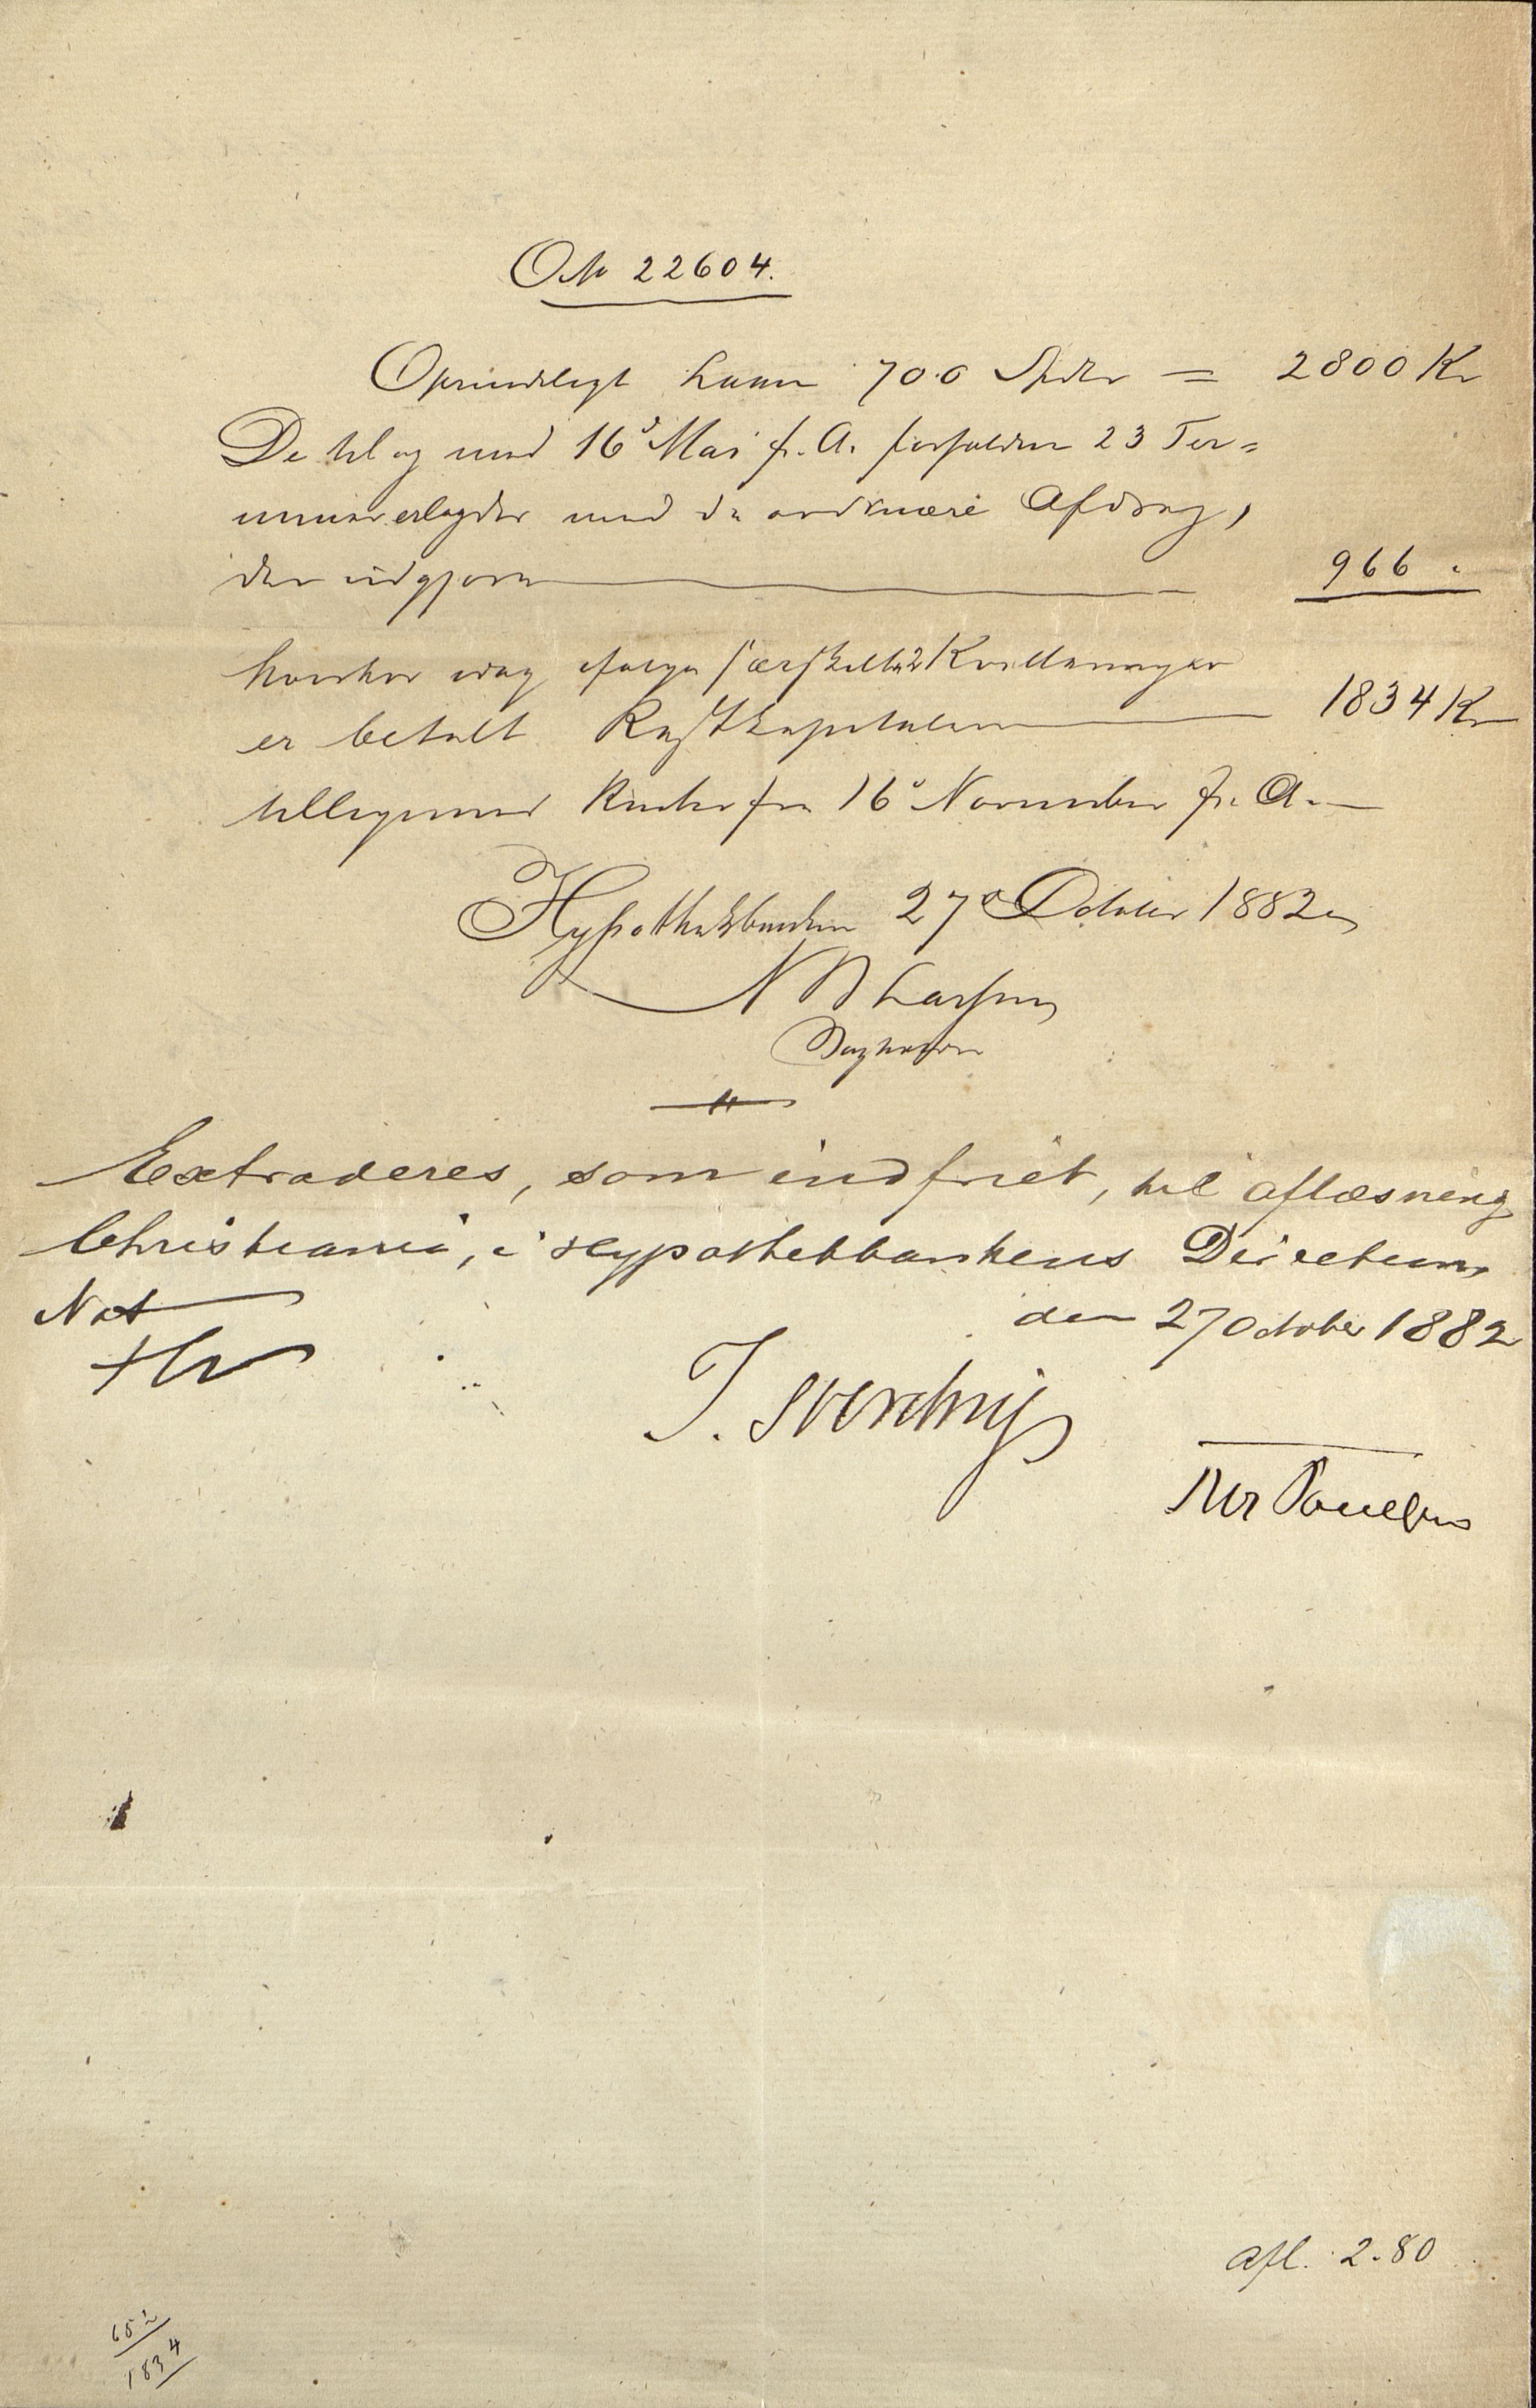 O No 22604.
Oprindeligt Laan 700 Spdlr = 2800 Kr
De til og med 16de Mai ds. A. forfaldne 23 Ter-
miner erlagdes med de ordinære Afdrag,
der udgjøre 966 "
hvorhos idag ifølge særskilte 2 Kvitteringer
er betalt Restkapitalen 1834 Kr
tilligemed Renter fra 16de November f. A.
Hypothekbanken 27de October 1882
N B Larsen
Bogholder
Extraderes, som indfriet, til aflæsning
Christiania, i Hypothekbankens Direction,
Not
den 27 October 1882
J. Sverdrup
afl. 2.80
1834